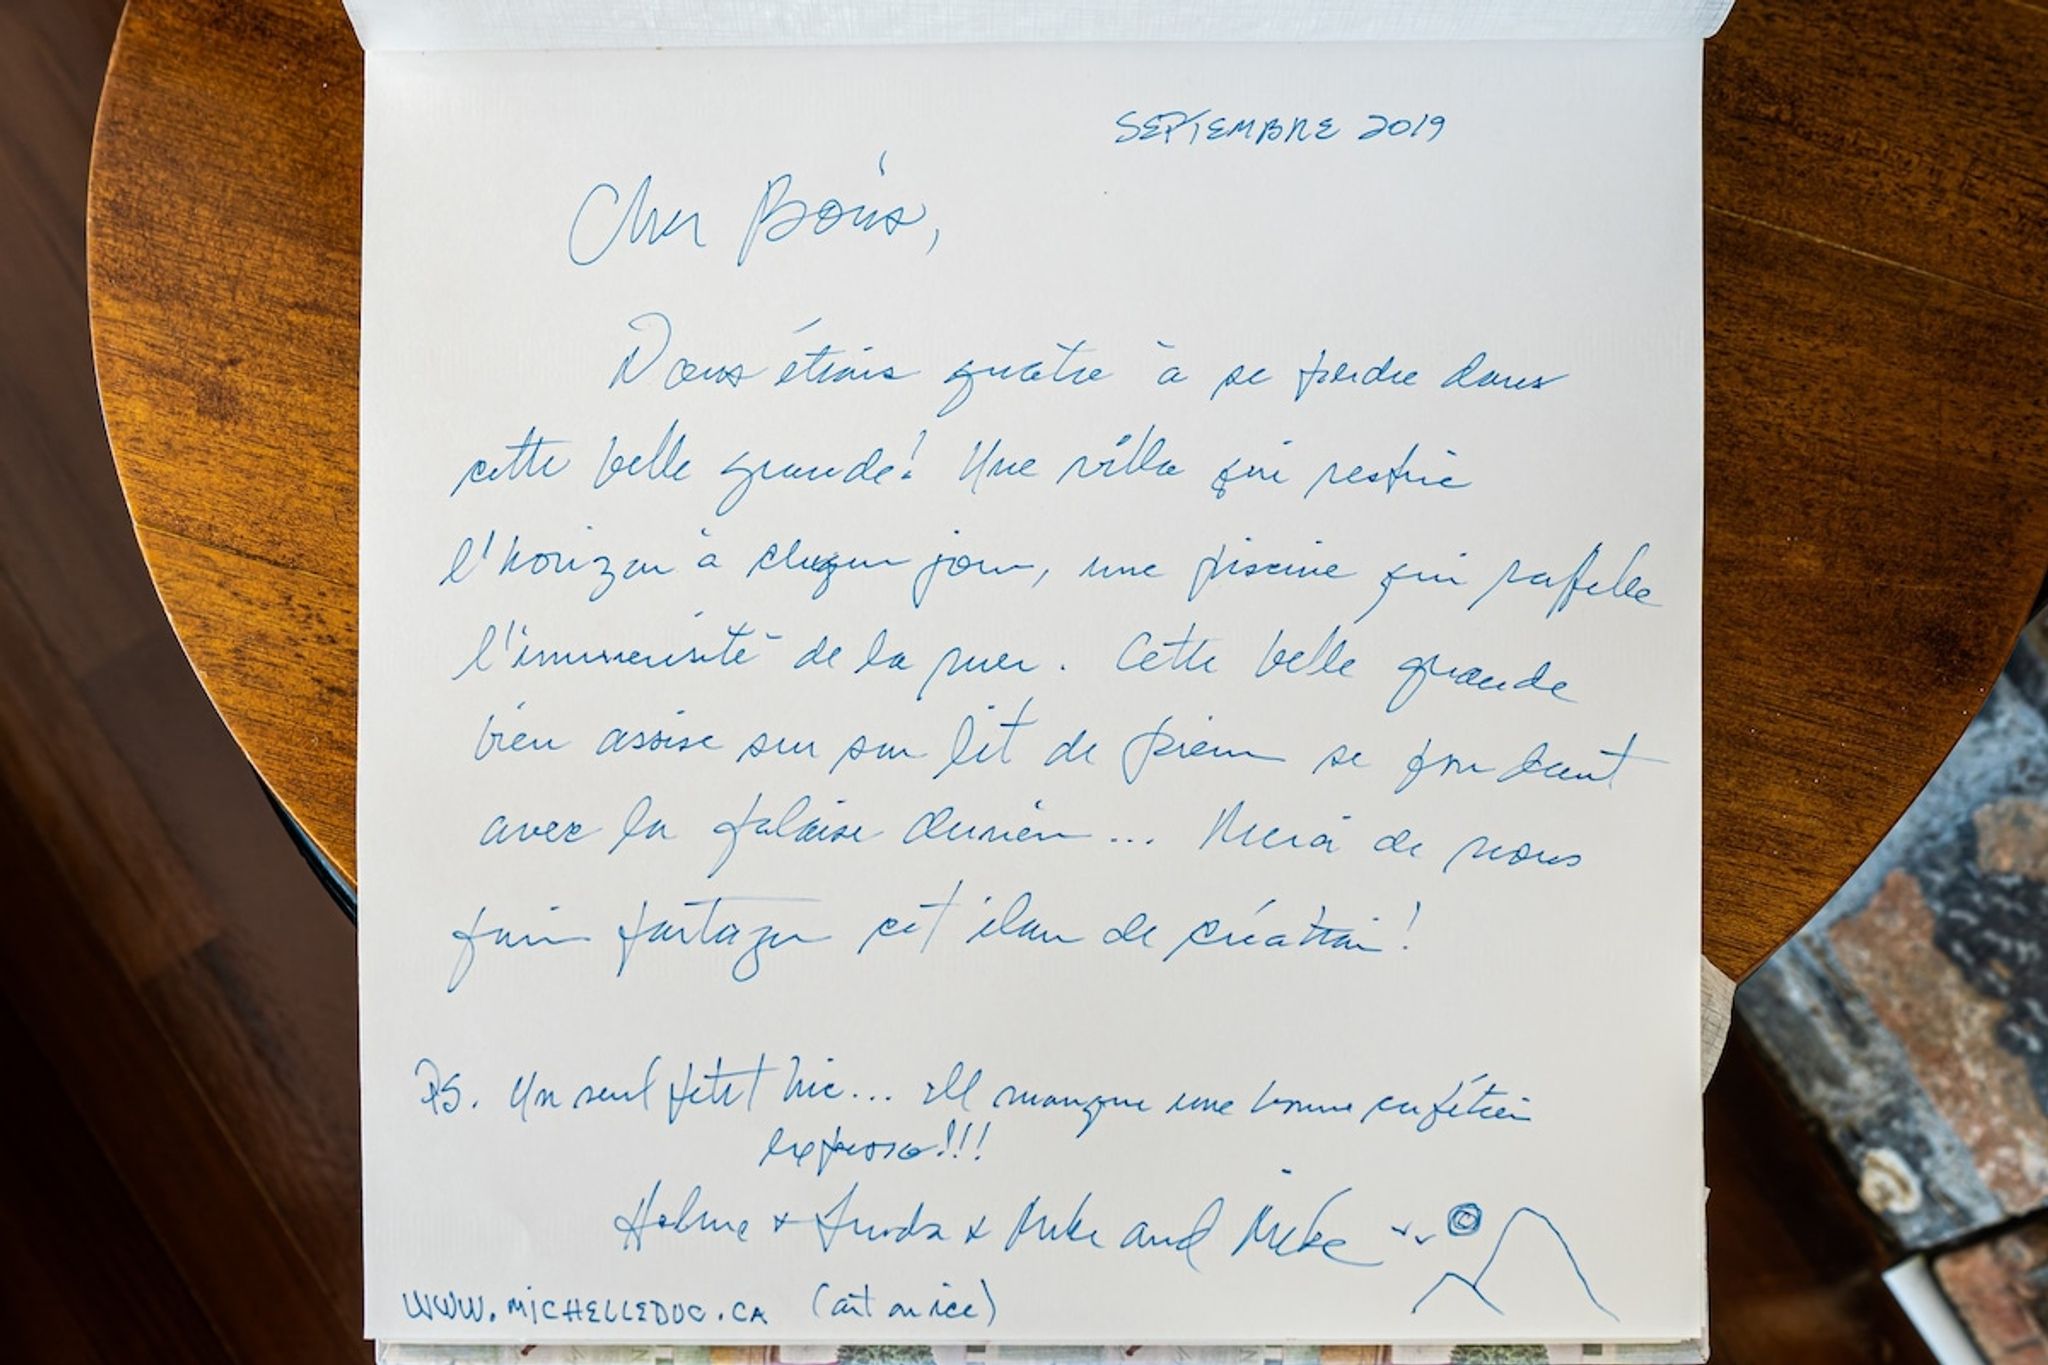 SEPTEMBRE 2019
Cher Boris,
Nous étions quatre à se perdre dans
cette belle grande! Une villa qui respire
l'horizon à chaque jour, une piscine qui rappelle
l'immensité de la mer. Cette belle grande
bien assise sur son lit de pierre se fondant
avec la falaise derrière... Merci de nous
faire partager cet élan de création!
PS. Un seul petit hic... Il manque une bonne cafétière
expresso!!!
& Linda & Mike and Mike
WWW.MICHELLEDUC.CA (art on ice)